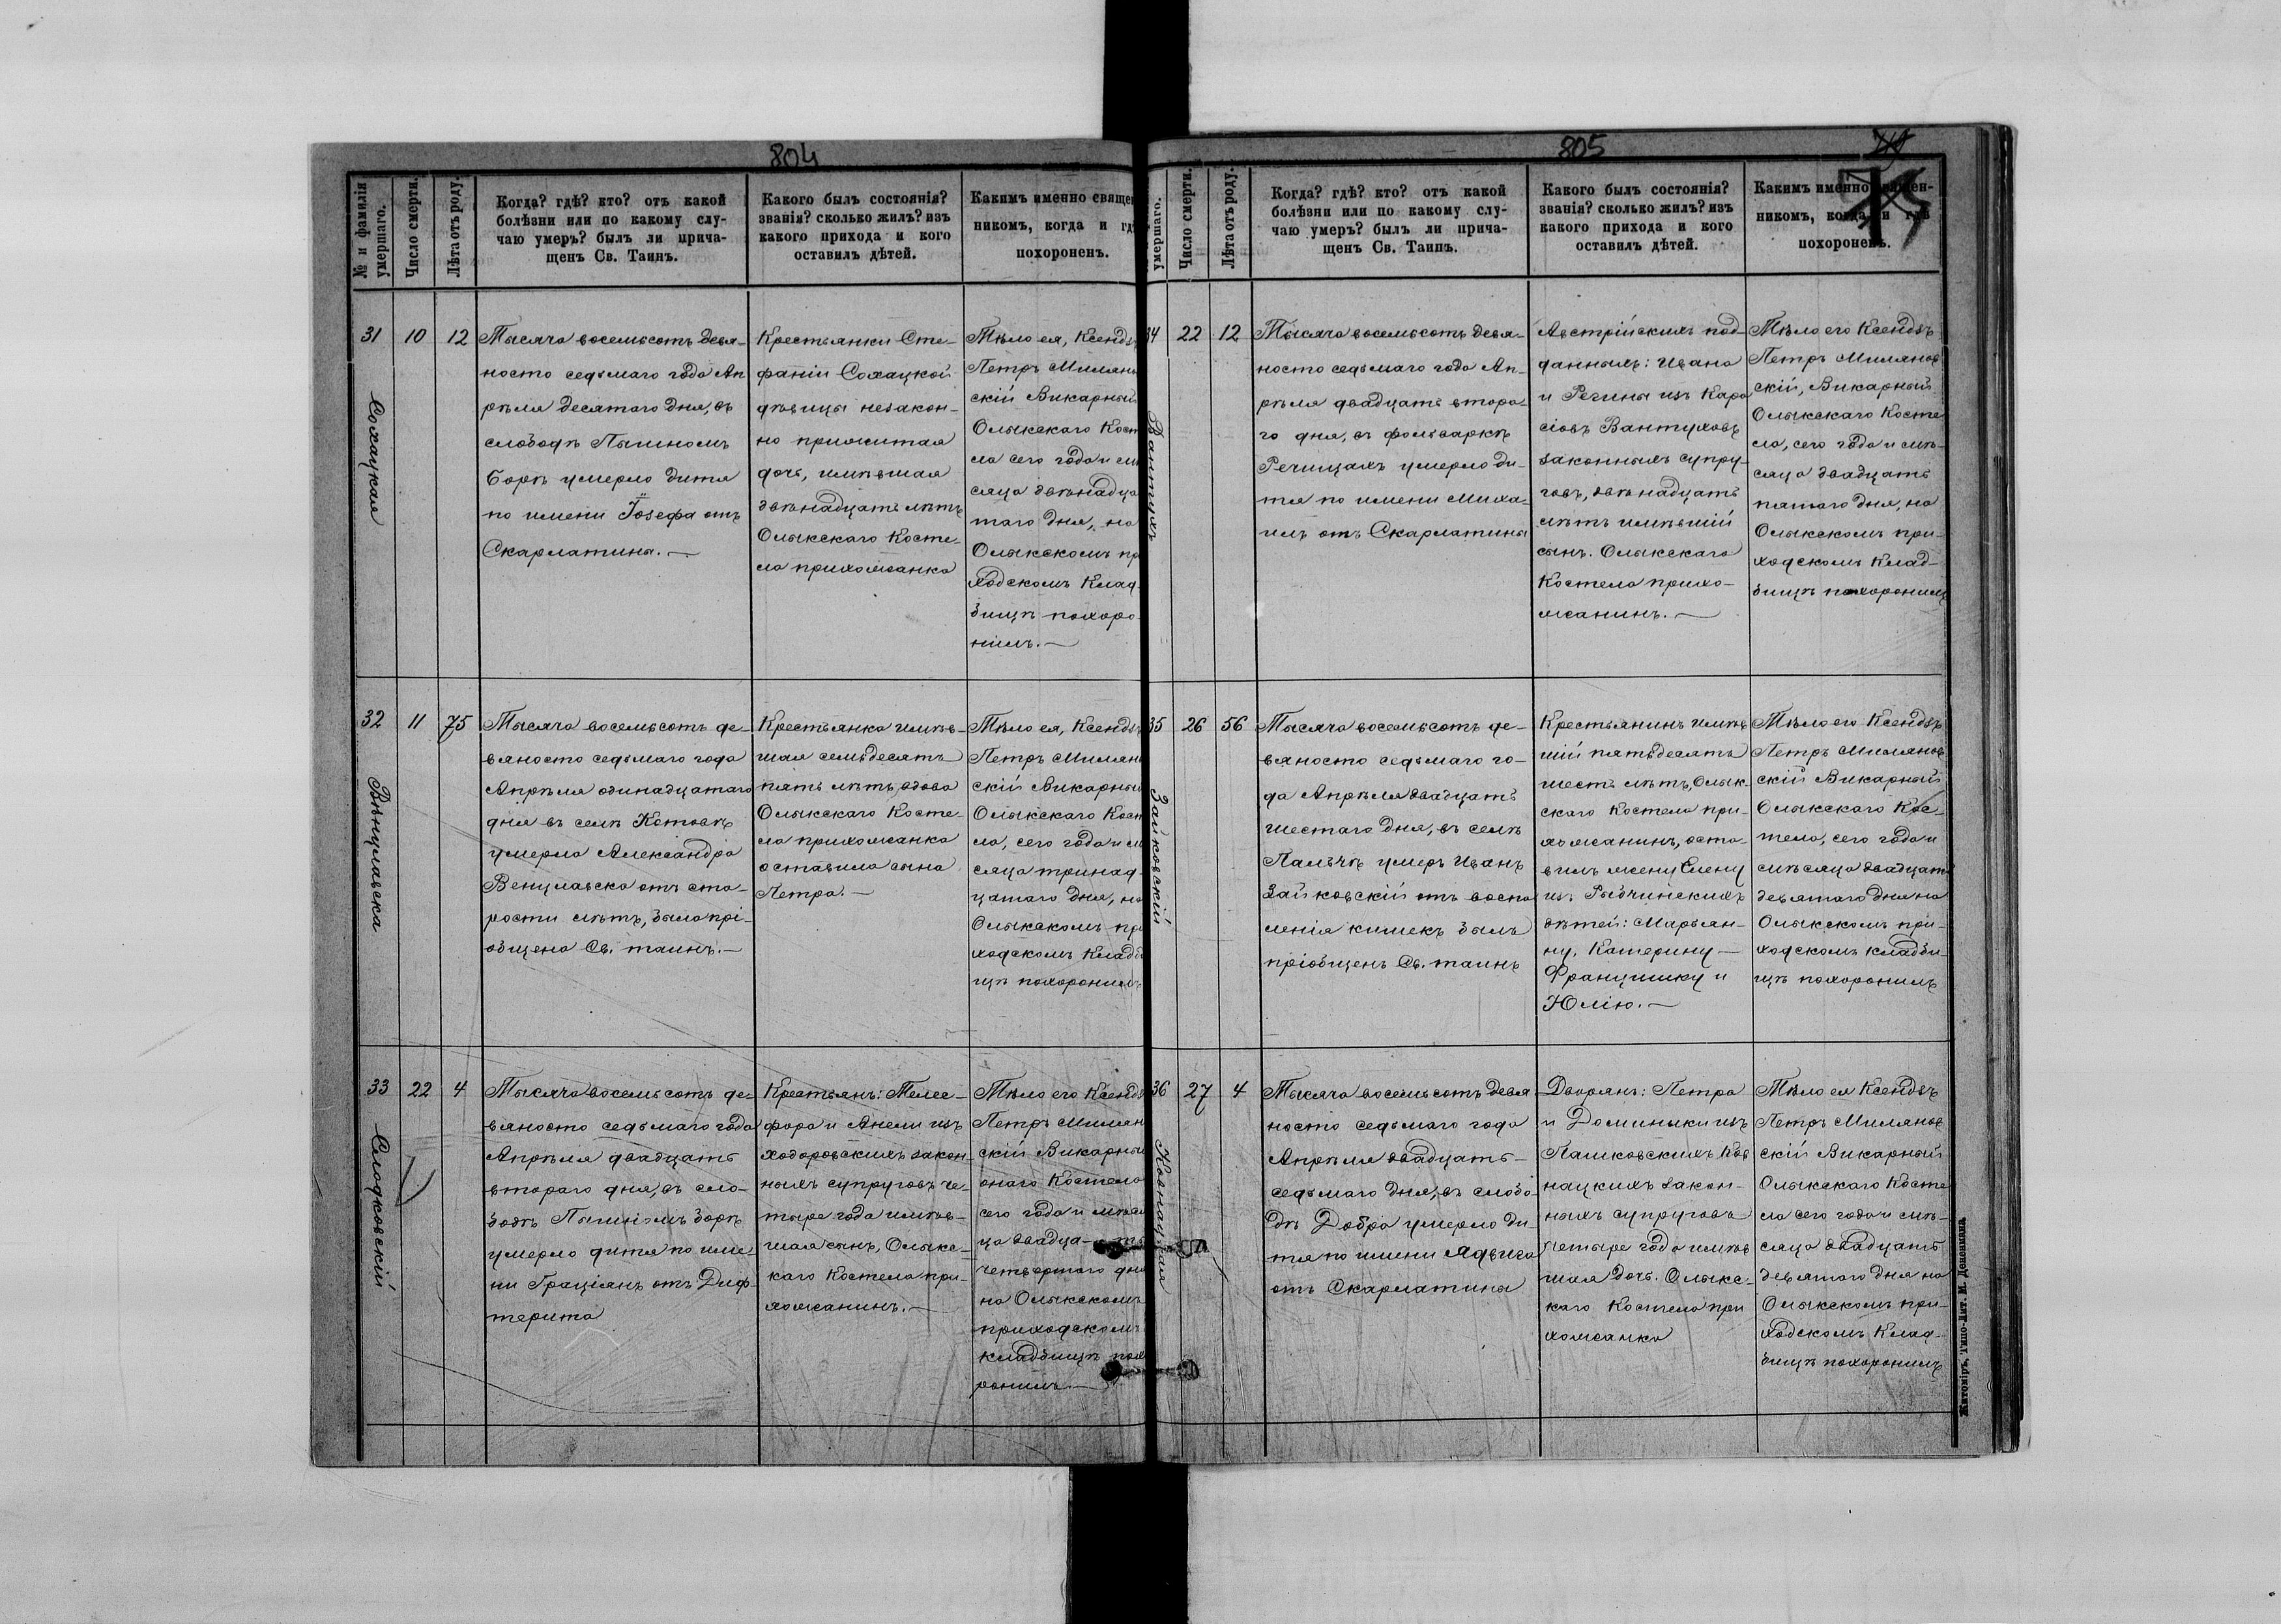 804
№ и фамилія умершаго.
Число смерти.
Лѣта отъ роду.
Когда? гдѣ? кто? отъ какой
болѣзни или по какому слу-
чаю умеръ? былъ ли прича-
щенъ Св. Таинъ.
Какого былъ состоянія?
званія? сколько жилъ? изъ
какого прихода и кого
оставилъ дѣтей.
Какимъ именно свяще
никомъ, когда и гд
похороненъ.
31
Сохацкая
10
12
Тысяча восемьсотъ девя-
носто седьмаго года Ап
рѣля десятаго дня, въ
слободѣ Пышномъ
Борѣ умерло дитя
по имени Іозефа отъ
Скарлатины.
Крестьянки Сте-
фаніи Сохацкой
дѣвицы незакон-
но прижитая
дочь, имѣвшая
двѣнадцать лѣтъ
Олыкскаго Косте-
ла прихожанка
Тѣло ея, Ксендзъ
Петръ Милян
скій Викарный
Олыкскаго Кост
ла сего года и м
сяца двѣнадца
таго дня, на
Олыкскомъ пр
ходскомъ Клад
бищѣ похоро
нилъ.
32
Вѣнцлавска
11
75
Тысяча восемьсотъ де-
вяносто седьмаго года
Апрѣля одинадцатаго
дня въ селѣ Котовѣ
умерла Александра
Венцлавска отъ ста-
рости лѣтъ, была прі-
общена Св. таинъ.
Крестьянка имѣв-
шая семьдесятъ
пять лѣтъ, вдова
Олыкскаго Косте-
ла прихожанка
оставила сына
Петра.
Тѣло ея, Ксендзъ
Петръ Милян
скій Викарный
Олыкскаго Кост
ла, сего года и м
сяца тринад
цатаго дня, на
Олыкскомъ пр
ходскомъ Кладб
щѣ похоронилъ
33
Слодковскій
22
4
Тысяча восемьсотъ де-
вяносто седьмаго года
Апрѣля двадцать
втораго дня, въ сло-
бодѣ Пышномъ Борѣ
умерло дитя по име
ни Граціанъ отъ Диф-
терита
Крестьянъ: Телес-
фора и Анели изъ
Ходоровскихъ закон-
ныхъ супруговъ че-
тыре года имѣв-
шая сынъ, Олыкс-
каго Костела при-
хожанинъ.
Тѣло его Ксендз
Петръ Милян
скій Викарный
онаго Костела
сего года и мѣся
ца двадца- ть
четвертаго дня
на Олыкскомъ
приходскомъ
кладбищѣ похо
ронилъ.
805
умершаго.
Число смерти.
Лѣта отъ роду.
Когда? гдѣ? кто? отъ какой
болѣзни или по какому слу-
чаю умеръ? былъ ли прича-
щенъ Св. Таинъ.
Какого былъ состоянія?
званія? сколько жилъ? изъ
какого прихода и кого
оставилъ дѣтей.
Какимъ именно священ-
никомъ, когда и гдѣ
похороненъ.
34
Вантухъ
22
12
Тысяча восемьсотъ девя-
носто седьмаго года Ап-
рѣля двадцать второ-
го дня, въ фольваркѣ
Речищахъ умерло ди-
тя по имени Миха-
илъ отъ Скарлатины
Австрійскихъ под-
данныхъ: Ивана
и Регины изъ Каро
сіовъ Вантуховъ
законныхъ супру-
говъ, двѣнадцать
лѣтъ имѣвшій
сынъ. Олыкскаго
Костела прихо-
жанинъ.
Тѣло его Ксендзъ
Петръ Милянов
скій, Викарный
Олыкскаго Косте
ла, сего года и мѣ-
сяца двадцать
пятаго дня, на
Олыкскомъ при-
ходскомъ Клад-
бищѣ похоронилъ
35
Зайковскій
26
56
Тысяча восемьсотъ де-
вяносто седьмаго го-
да Апрѣля двадцать
шестаго дня, въ селѣ
Пальчѣ умеръ Иванъ
Зайковскій отъ воспа
ленія кишекъ былъ
пріобщенъ Св. таинъ
Крестьянинъ имѣв
шій пятьдесятъ
шесть лѣтъ, Олык-
скаго Костела при-
хожанинъ, оста-
вилъ жену Елену
изъ Рыбчинскихъ
дѣтей: Марьян-
ну, Катерину
Францишку и
Юлію.
Тѣло его Ксендзъ
Петръ Милянов
скій Викарный
Олыкскаго Кос-
тела, сего года и
мѣсяца двадцать
девятаго дня на
Олыкскомъ при-
ходскомъ кладби-
щѣ похоронилъ
36
27
4
Тысяча восемьсотъ девя
носто седьмаго года
Апрѣля двадцать
седьмаго дня, въ слобо-
дѣ Добра умерло ди-
тя по имени Ядвига
отъ Скарлатины
Дворянъ: Петра
и Доминики изъ
Пашковскихъ Ков
нацкихъ закон-
ныхъ супруговъ
четыре года имѣв
шая дочь. Олыкс-
каго Костела при
хожанка
Тѣло ея Ксендзъ
Петръ Милянов
скій Викарный
Олыкскаго Косте
ла сего года и мѣ-
сяца двадцать
девятаго дня на
Олыкскомъ при-
ходскомъ Клад-
бищѣ похоронилъ
Житоміръ, Типо-Лит. М. Дененмана